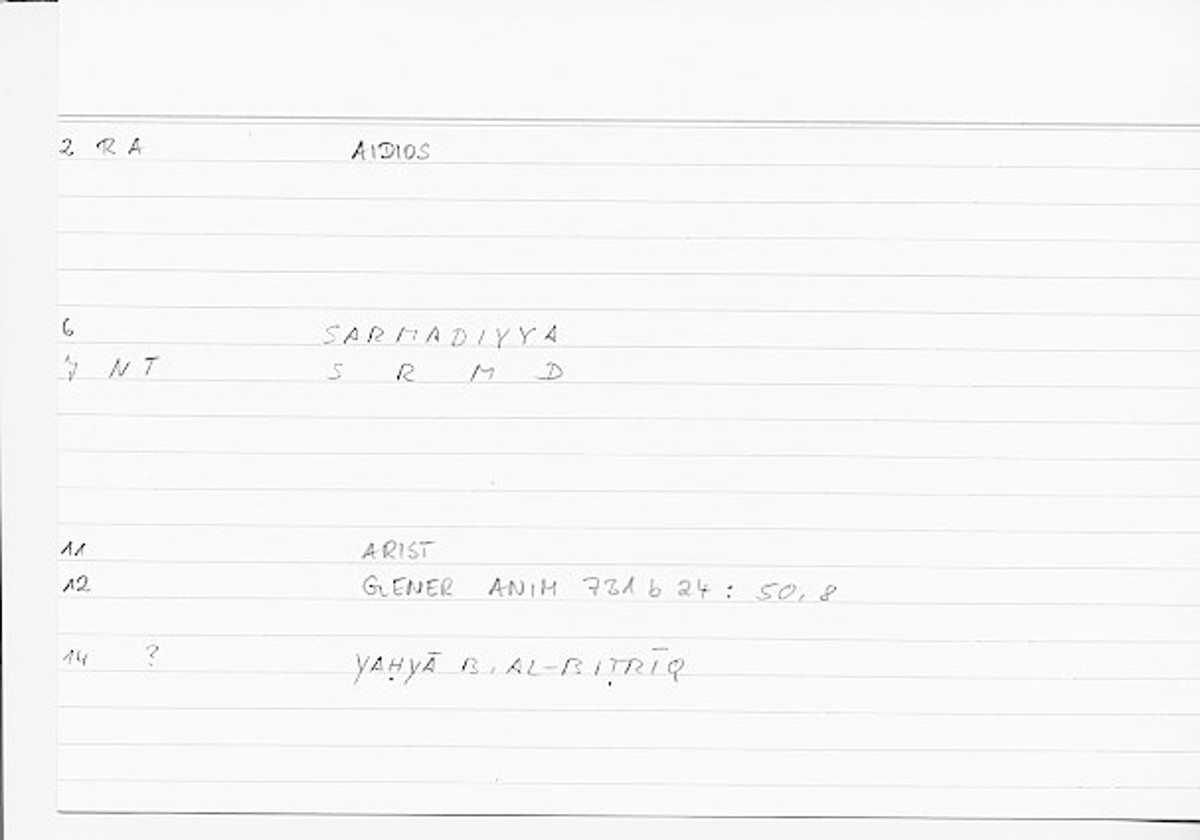 2 RA AIDIOS
6 SARMADIYYA
7 NT S R M D
11 ARIST
12 GENER ANIM 731 b 24 : 50,8
14 ? YAḤYĀ B. AL-BIṬRĪQ